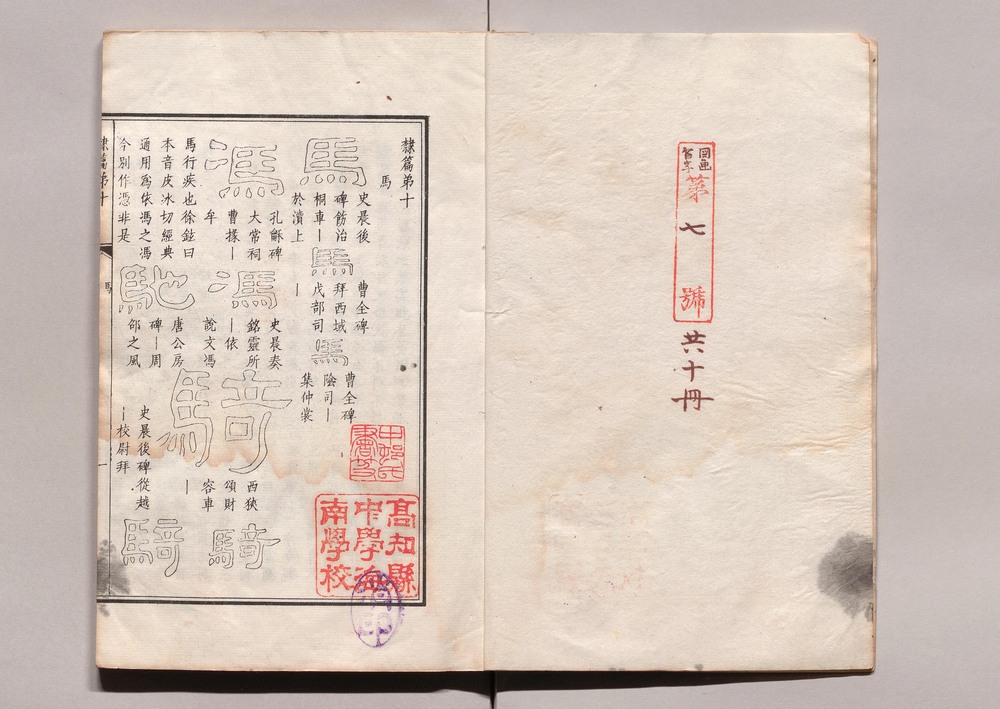 図画
習字
第七號
共十冊
隸篇弟十
馬
馬
史晨後
碑飭治
桐車｜
於瀆上
馬
曹全碑
拜西域
戊部司
｜
馬
曹全碑
陰司｜
集仲裳
馮
孔龢碑
大常祠
曹掾｜
牟
馮
史晨奏
銘靈所
｜依
說文馮
馬行疾也徐鉉曰
本音皮冰切經典
通用爲依馮之馮
今別作憑非是
馳
唐公房
碑｜周
邵之風
騎
西狹
頌財
容車
｜
騎
史晨後碑從越
｜校尉拜
騎
隸篇弟十
馬
一
高知縣
中學海
南學校